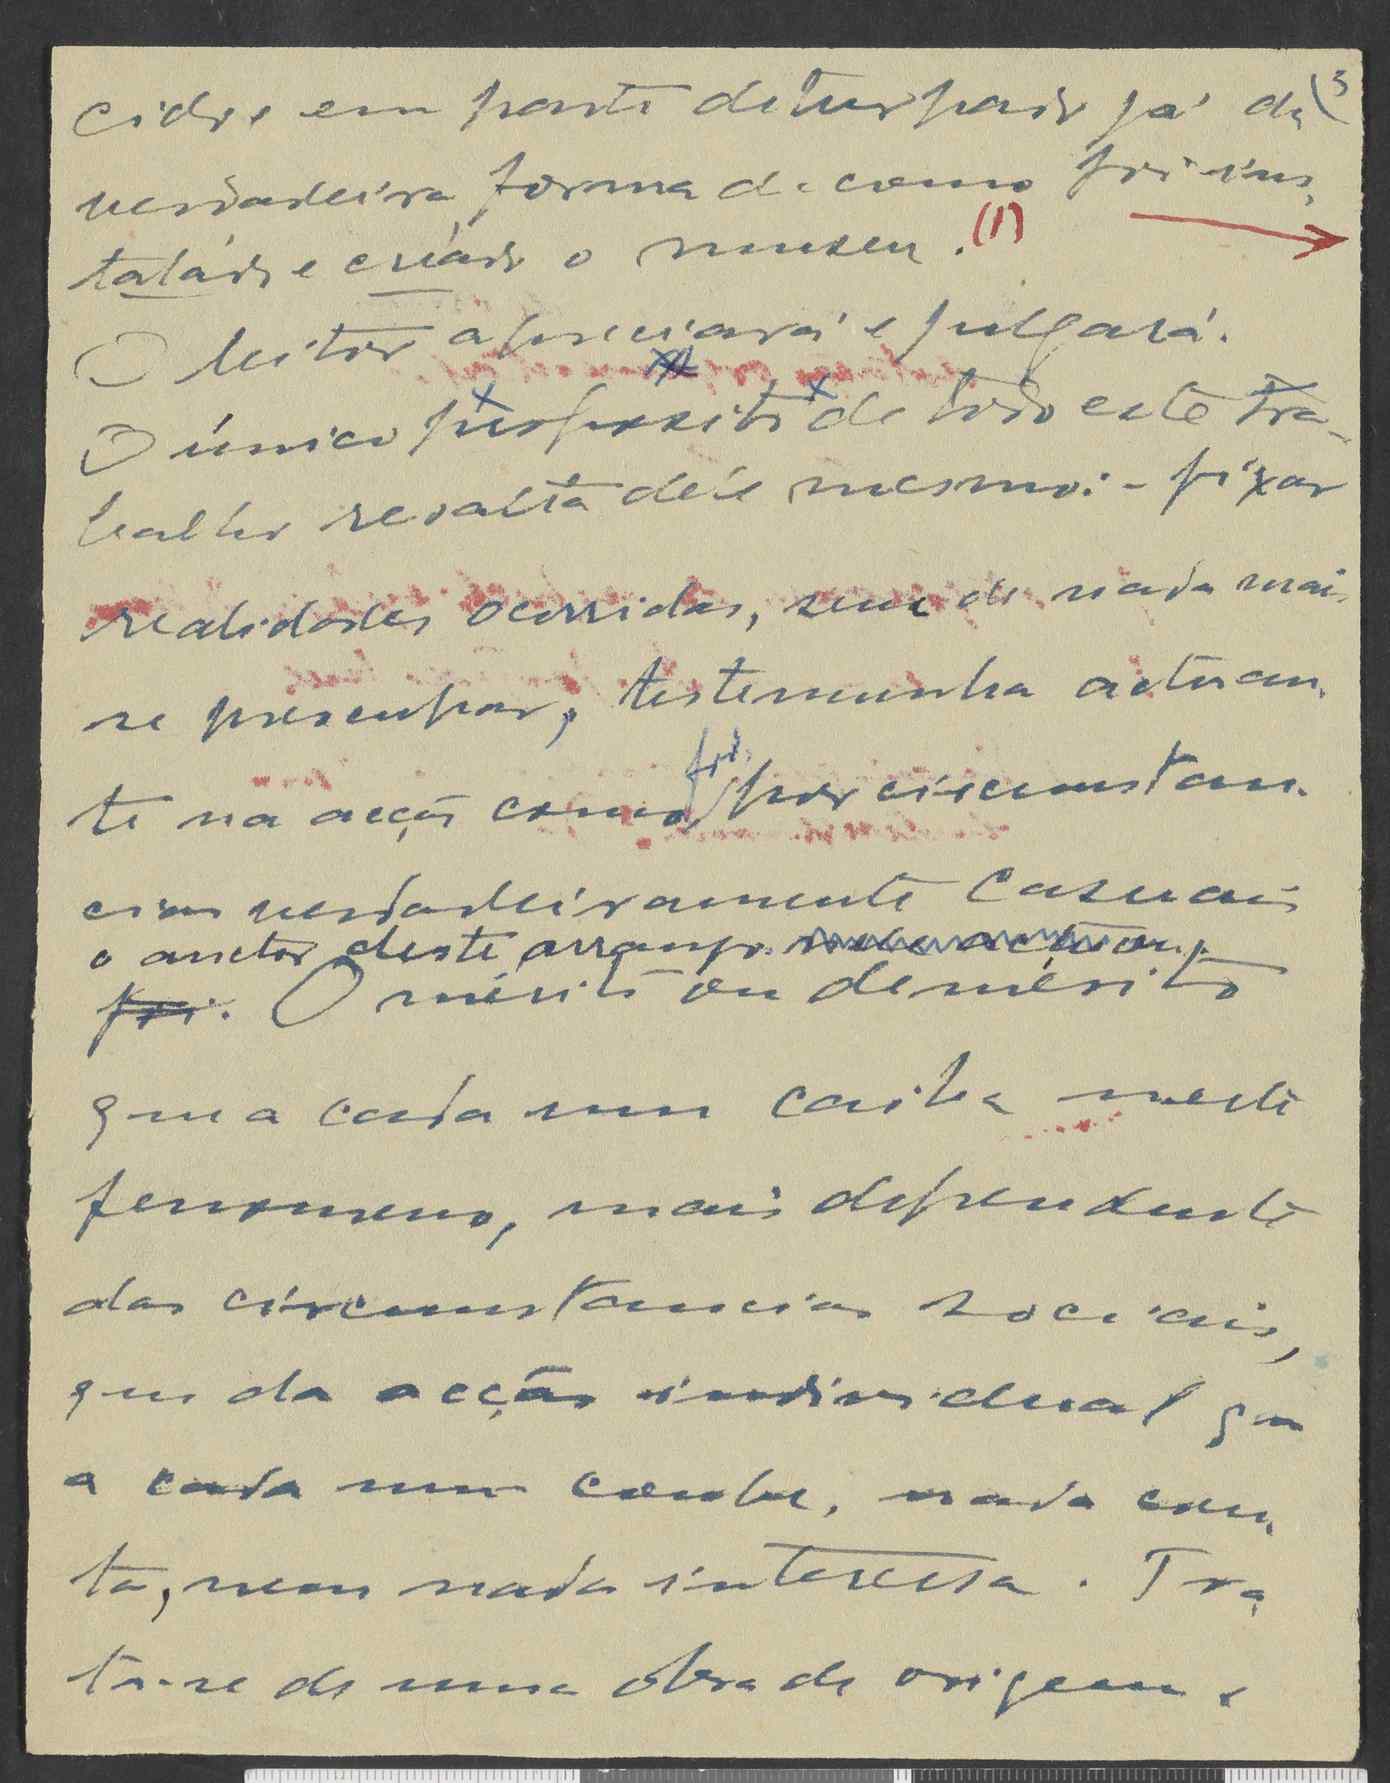 (3
cido e em parte deturpado já da
verdadeira forma de como foi ins-
talado e criado o museu. (1)
O leitor apreciará e julgará.
O único proposito de todo este tra-
balho resalta dele mesmo: - fixar
realidades ocorridas, sem de nada mais
se preocupar, testemunha actuan-
te na acção como foi, por circunstan-
cias verdadeiramente casuais
o auctor deste arranjo.
foi. O mérito ou demérito
que a cada um caiba neste
fenomeno, mais dependente
das circunstancias sociais,
que da acção individual que
a cada um coube, nada con-
ta, nem nada interessa. Tra
ta-se de uma obra de origem e